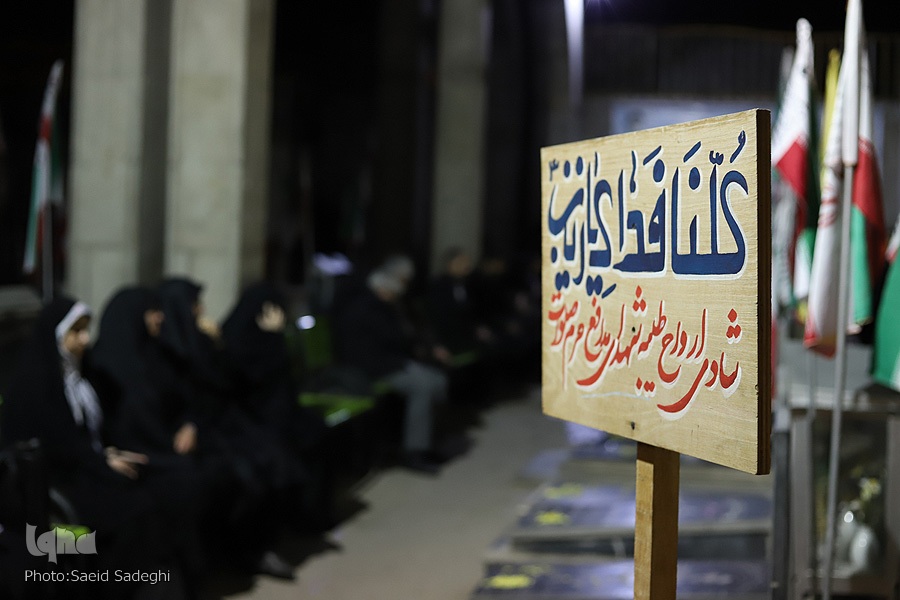 کُلُّنا فداکِ یا زینب س
شادی ارواح طیبه شهدای مدافع حرم صلوات
iqna
Photo:Saeid Sadeghi